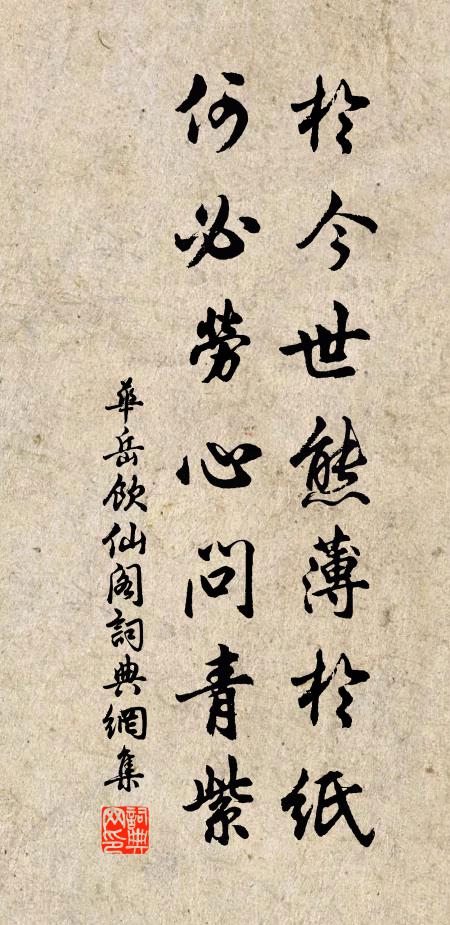 於今世態薄於紙
何必勞心問青紫
華岳飲仙閣詞典網集
詞典網印